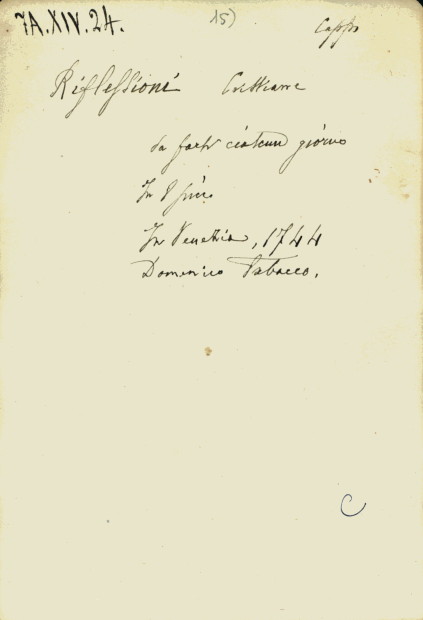 7A.XIV.24.
15)
Riflessioni Cristiane
da farsi ciascun giorno
In
In Venezia, 1744
Domenico Tabacco.
C